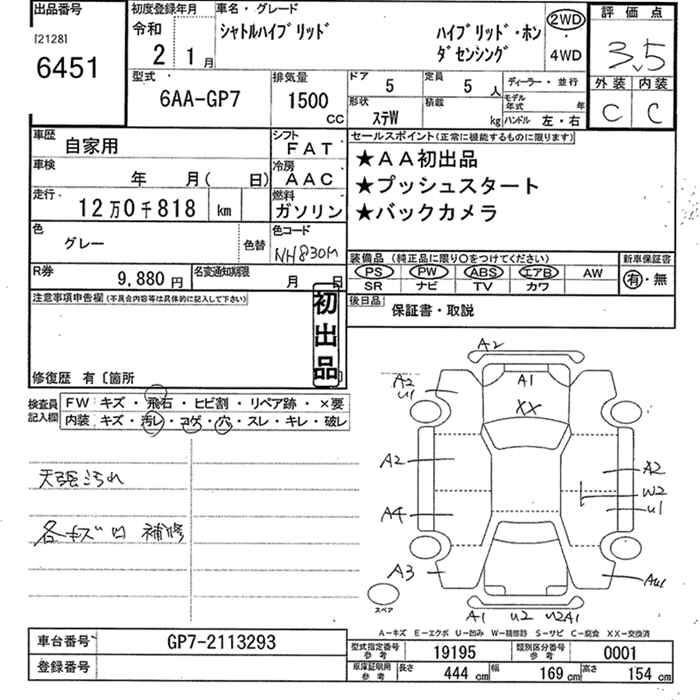 出品番号
[2128]
6451
初度登録年月
令和
2 1月
車名・グレード
シャトルハイブリッド ハイブリッド・ホン
ダセンシング
2WD
・
4WD
評価点
3.5
外装 内装
C C
型式
6AA-GP7
排気量
1500
CC
ドア
5
定員
5 人
形状
ステW
積載
kg
ディーラー・並行
モデル
年式 年
ハンドル 左・右
車歴
自家用
シフト
FAT
車検
年 月( 日)
冷房
AAC
走行
12万0千818 km
燃料
ガソリン
セールスポイント(正常に機能するものに限ります)
★AA初出品
★プッシュスタート
★バックカメラ
色
グレー
色替
色コード
NH830M
装備品(純正品に限り○をつけてください)
PS PW ABS エアB AW
SR ナビ TV カワ
新車保証書
有・無
R券
9,880 円
名変通知期限
月 日
後日品
保証書・取説
注意事項申告欄(不具合内容等は具体的に記入して下さい)
初出品
修復歴 有〔箇所 〕
検査員
記入欄
FW キズ・飛石・ヒビ割・リペア跡・×要
内装 キズ・汚レ・コゲ・穴・スレ・キレ・破レ
天張汚れ
各キズ凹 補修
A2
A1
XX
A2
U1
A2
A4
A3
A2
W2
U1
AU1
A1 U2 U2A1
スペア
A-キズ E-エクボ U-凹み W-補修跡 S-サビ C-腐食 XX-交換済
車台番号
GP7-2113293
登録番号
型式指定番号
参考
19195
類別区分番号
参考
0001
車庫証明用
参考
長さ 444 cm 幅 169 cm 高さ 154 cm